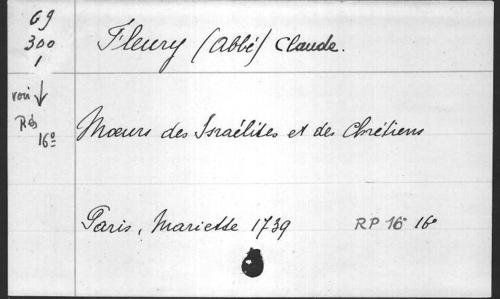 69
300
1
Fleury (Abbé) Claude.
voir ↓
Rés
16º
Mœurs des Israélites et des Chrétiens
Paris, Mariette 1739 RP 16º 16º